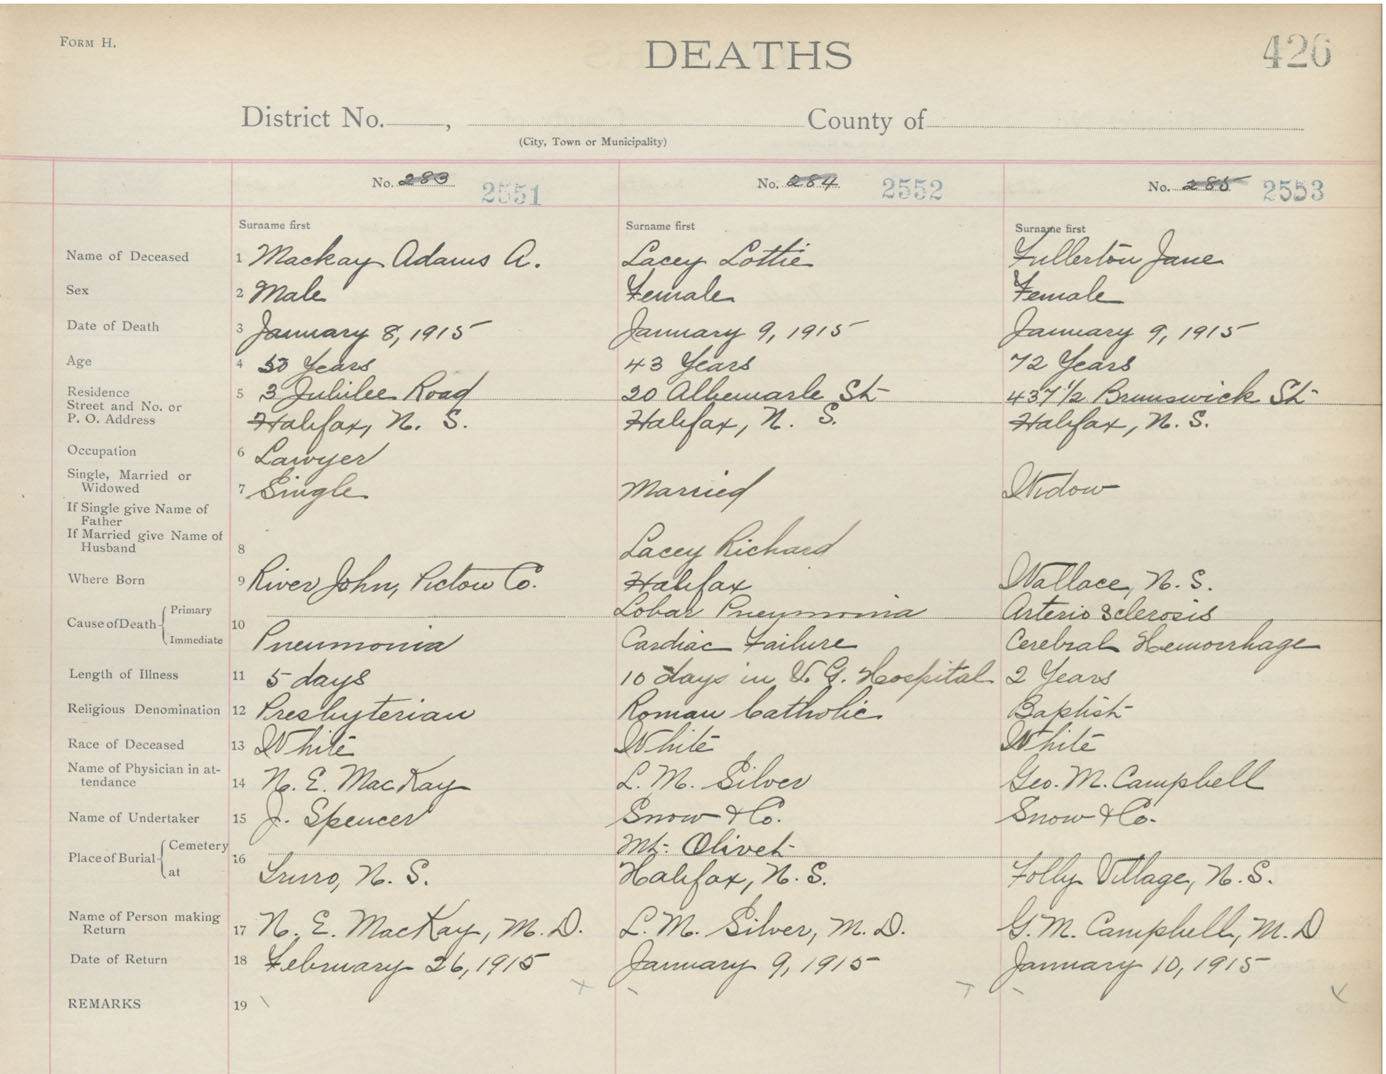 FORM H.
DEATHS
426
District No. , County of
(City, Town or Municipality)
No. 283 2551 No. 284 2552 No. 285 2553
Surname first Surname first Surname first
Name of Deceased 1 Mackay Adams A. Lacey Lottie Fullerton Jane
Sex 2 Male Female Female
Date of Death 3 January 8, 1915 January 9, 1915 January 9, 1915
Age 4 Years 43 Years 72 Years
Residence
Street and No. or 5 3 Jubilee Road 20 Albemarle St 437 1/2 Brunswick St
P. O. Address Halifax, N. S. Halifax, N. S. Halifax, N. S.
Occupation 6 Lawyer
Single, Married or
Widowed 7 Single Married Widow
If Single give Name of
Father
If Married give Name of
Husband 8 Lacey Richard
Where Born 9 River John, Pictou Co. Halifax Wallace, N. S.
Cause of Death Primary 10 Lobar Pneumonia Arterio Sclerosis
Immediate Pneumonia Cardiac Failure Cerebral Hemorrhage
Length of Illness 11 5 days 10 days in V. G. Hospital 2 Years
Religious Denomination 12 Presbyterian Roman Catholic Baptist
Race of Deceased 13 White White White
Name of Physician in at-
tendance 14 N. E. MacKay L. M. Silver Geo. M. Campbell
Name of Undertaker 15 J. Spencer Snow & Co. Snow & Co.
Place of Burial Cemetery 16 Mt. Olivet
at Truro, N. S. Halifax, N. S. Folly Village, N. S.
Name of Person making
Return 17 N. E. MacKay, M. D. L. M. Silver, M. D. G. M. Campbell, M. D
Date of Return 18 February 26, 1915 January 9, 1915 January 10, 1915
REMARKS 19